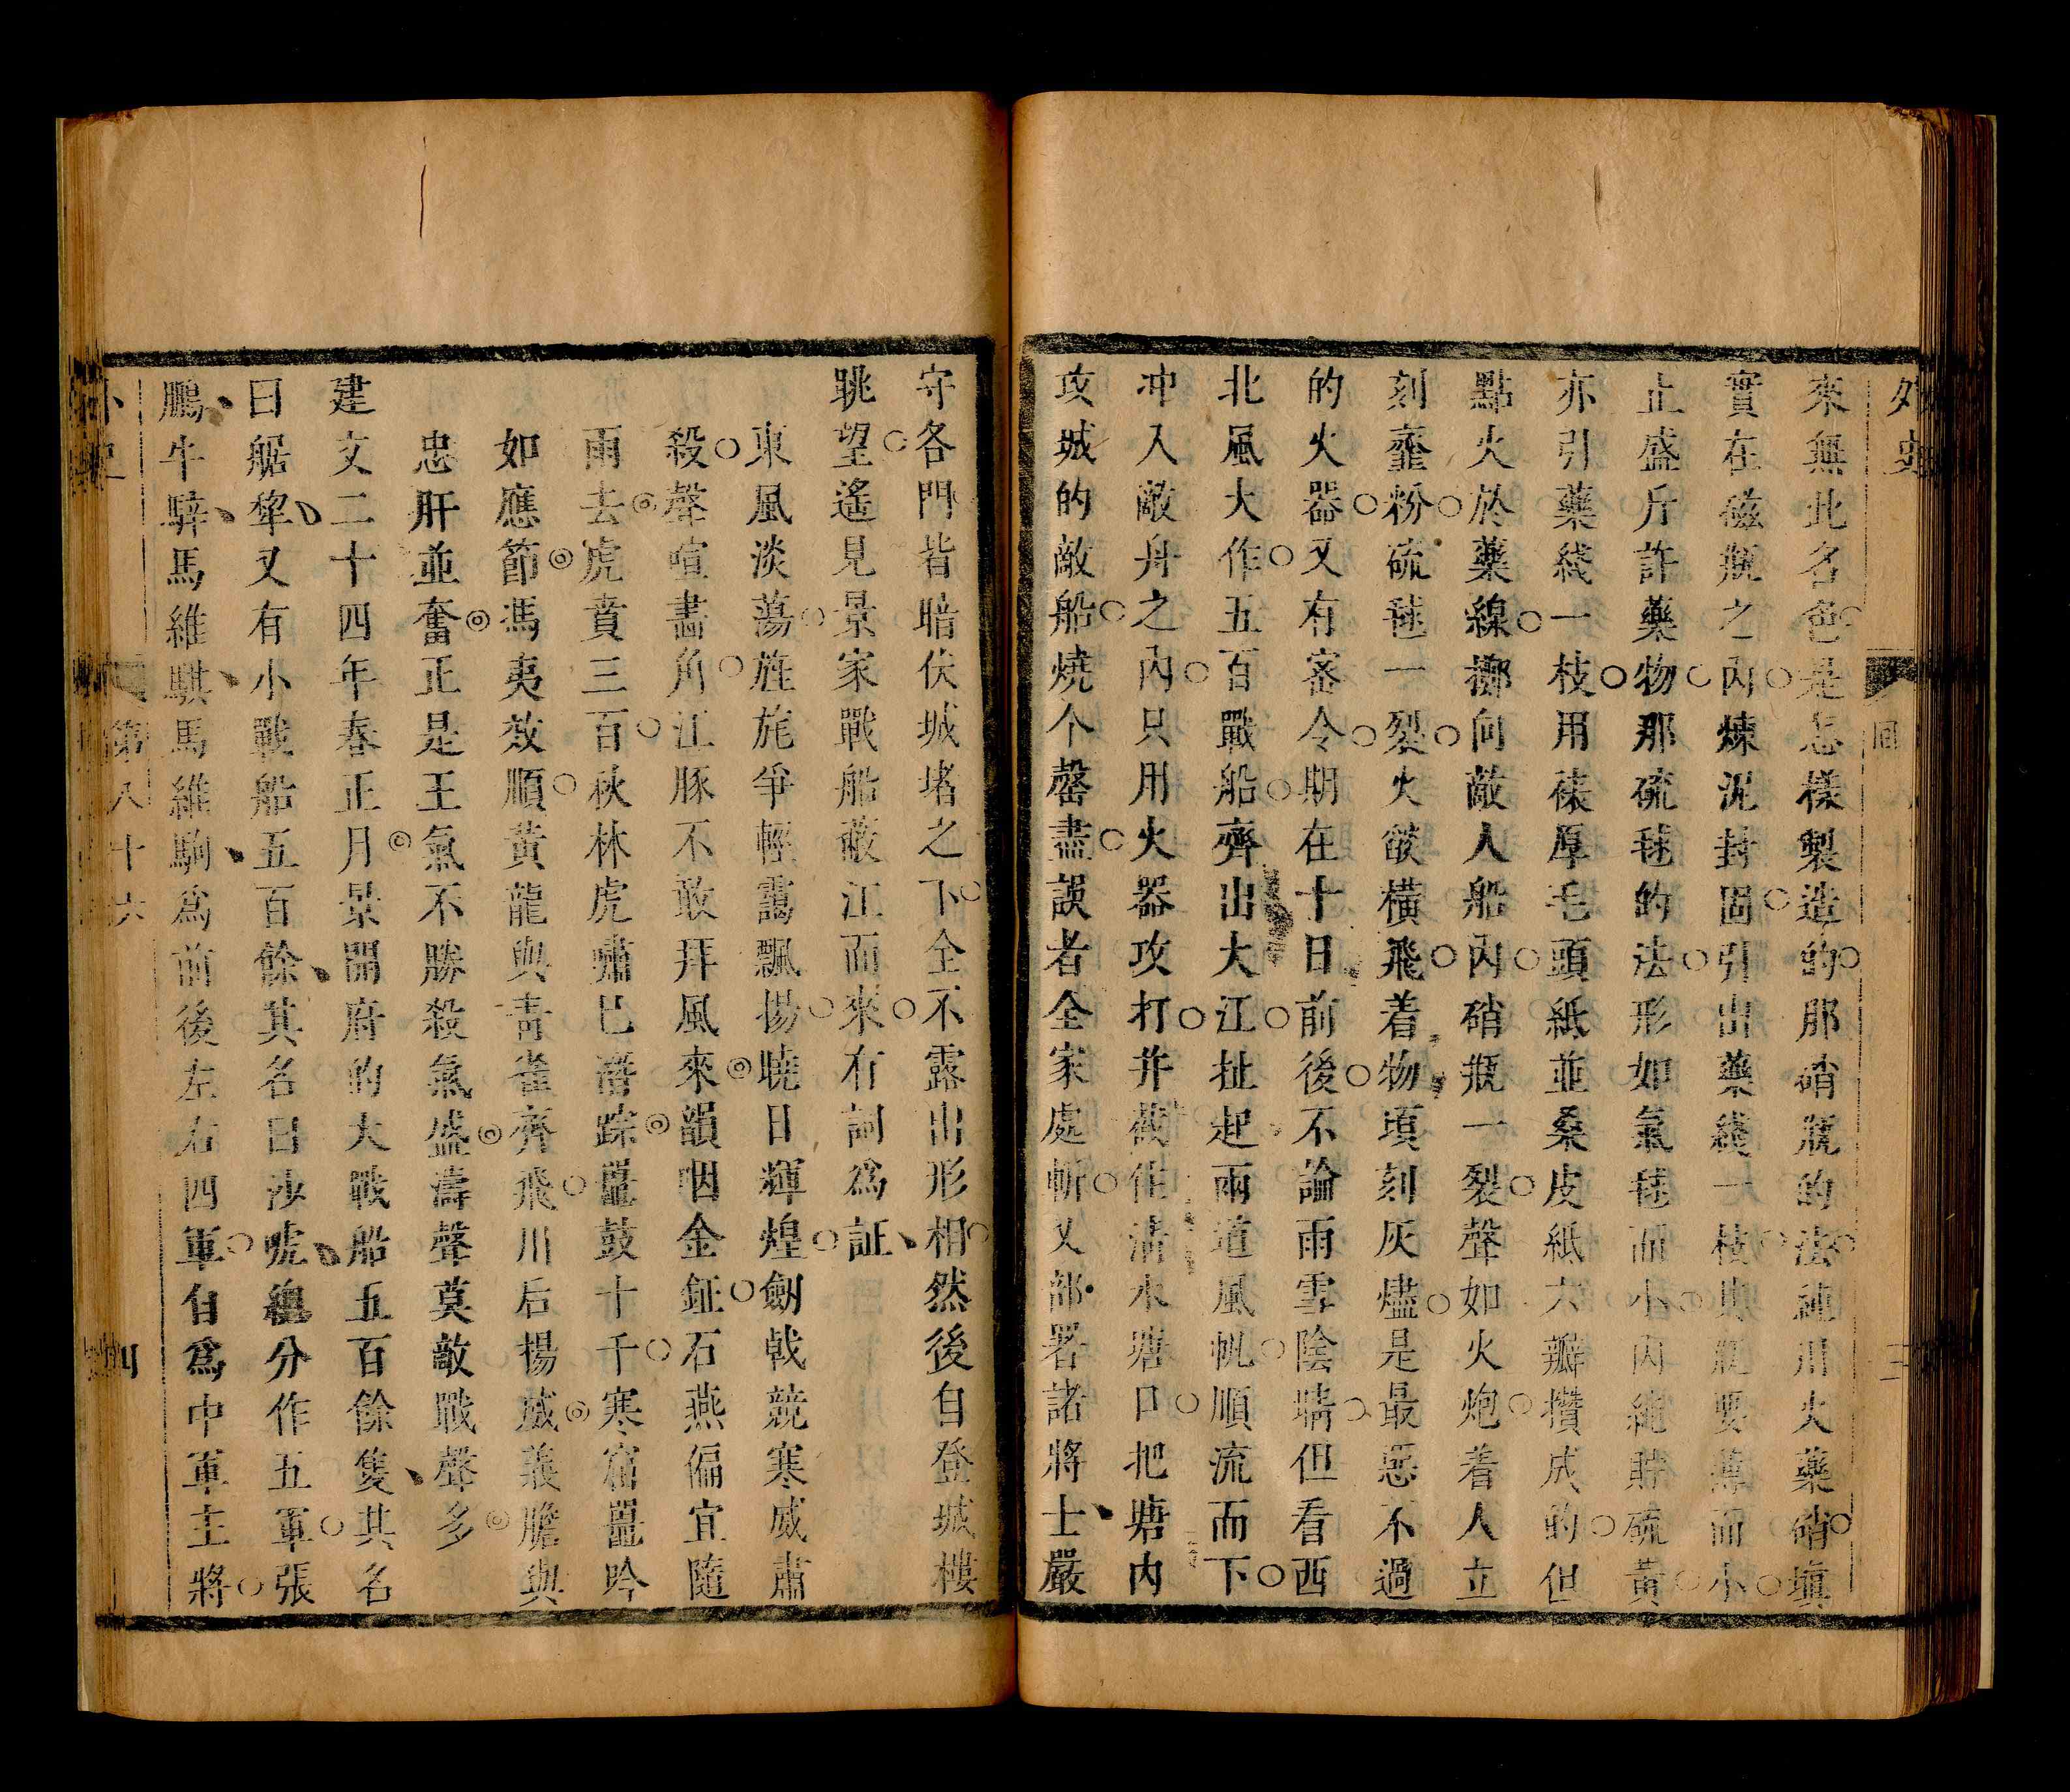 外史
回
三
來無此名色是怎樣製造的那硝瓶的法純用火藥硝填
實在磁瓶之內煉泥封固引出藥綫一枝其瓶要薄而小
止盛斤許藥物那硫毬的法形如氣毬而小內純貯硫黃
亦引藥綫一枝用𥚑厚毛頭紙並桑皮紙六瓣攢成的但
點火於藥線擲向敵人船內硝瓶一裂聲如火炮着人立
刻虀粉硫毬一裂火燄橫飛着物頃刻灰燼是最惡不過
的火器又有密令期在十日前後不論雨雪陰晴但看西
北風大作五百戰船齊出大江扯起兩道風帆順流而下
冲入敵舟之內只用火器攻打并截住清水塘口把塘內
攻城的敵船燒个罄盡誤者全家處斬又部署諸將士嚴
守各門皆暗伏城堵之下全不露出形相然後自登城樓
眺望遙見景家戰船蔽江而來有詞爲証
東風淡蕩旌旄爭輕靄飄揚曉日輝煌劍戟競寒威肅
殺聲喧畫角江豚不敢拜風來韻咽金鉦石燕偏宜隨
雨去虎賁三百秋林虎嘯已潛踪鼉鼓十千寒窟鼉吟
如應節馮夷效順黃龍與青雀齊飛川后揚威義膽與
忠肝並奮正是王氣不勝殺氣盛濤聲莫敵戰聲多
建文二十四年春正月景開府的大戰船五百餘隻其名
曰艍犂又有小戰船五百餘其名曰沙唬總分作五軍張
鵬牛騂馬維騏馬維駒爲前後左右四軍自爲中軍主將
外史
第八十六
四